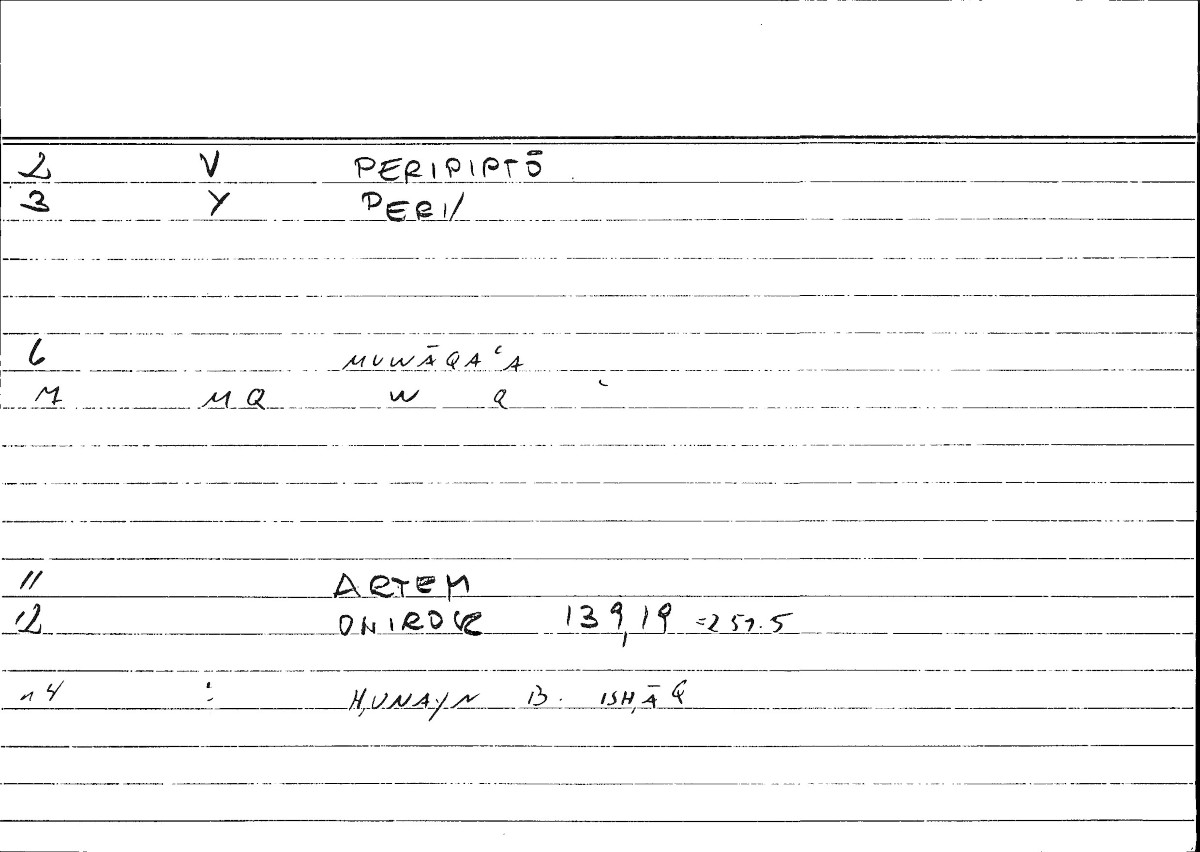 2 V PERIPIPTŌ
3 Y PERI/
6 MUWĀQAʿA
7 MQ W Q ʿ
11 ARTEM
12 ONIROCR 139,19 =257.5
14 : ḤUNAYN B. ISḤĀQ